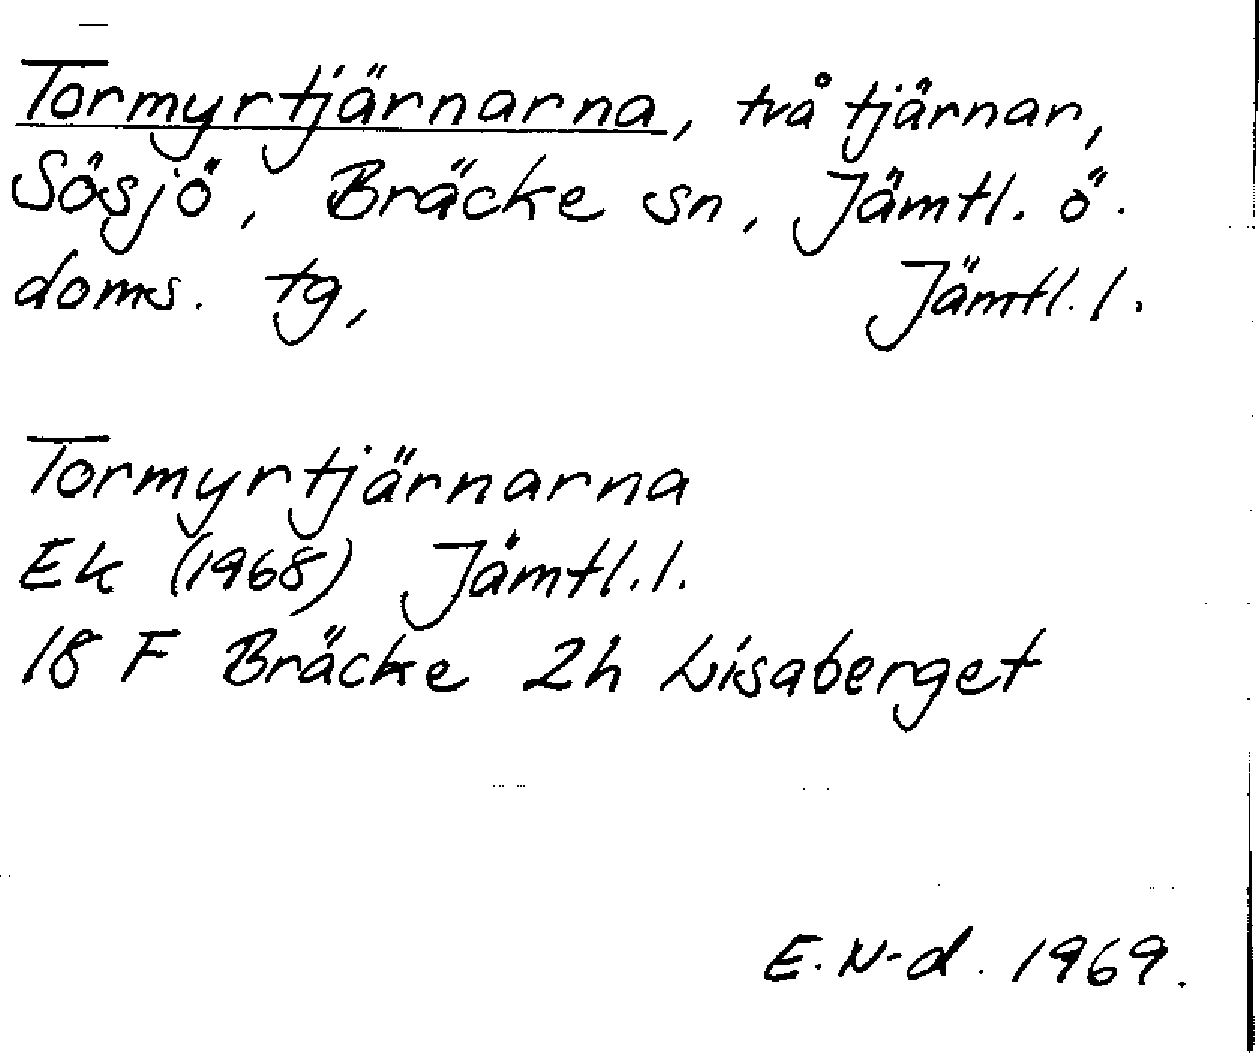 Tormyrtjärnarna, två tjärnar,
Sösjö, Bräcke sn, Jämtl. ö.
doms. tg, Jämtl. l.
Tormyrtjärnarna
Ek (1968) Jämtl. l.
18 F Bräcke 2h Lisaberget
E. N-d. 1969.